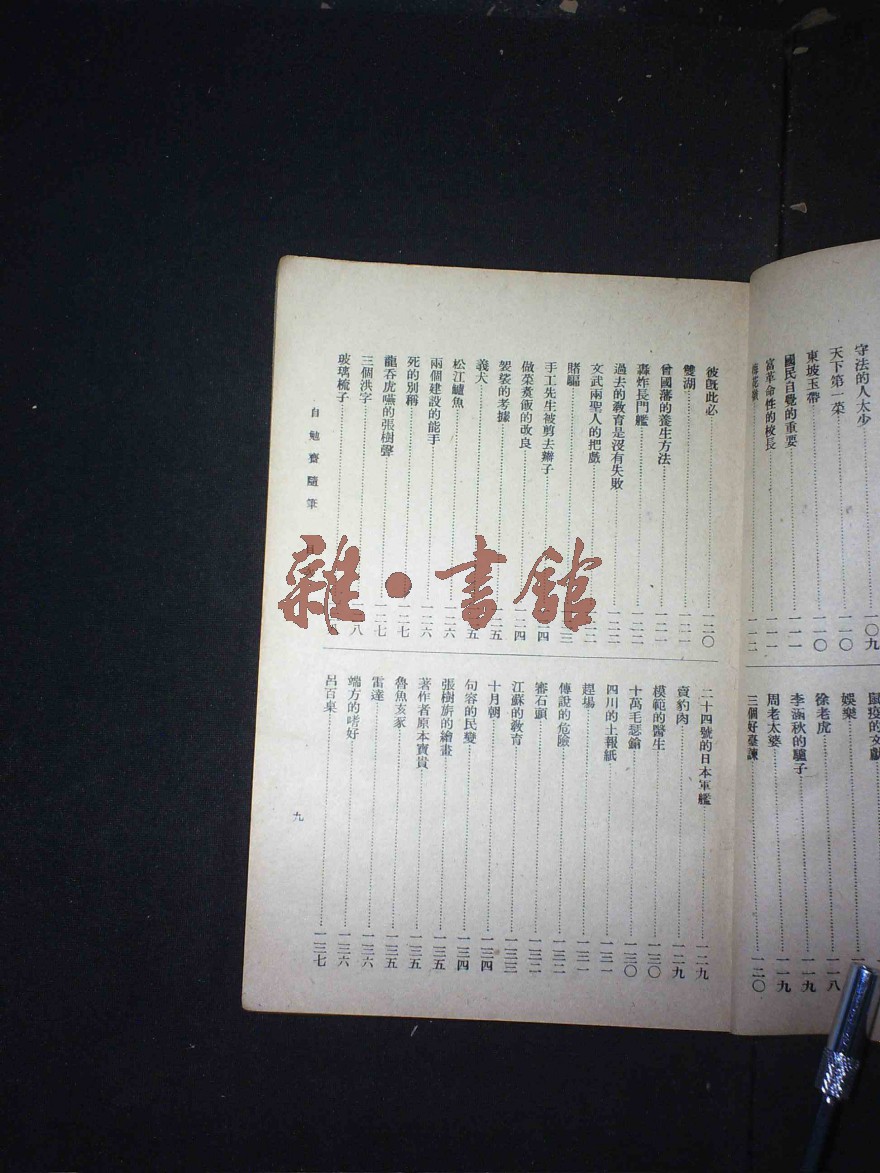 守法的人太少
〇九
天下第一菜
一一〇
東坡玉帶
一一〇
國民自覺的重要
一一一
富革命性的校長
一一一
一一二
鼠疫的文獻
娛樂
徐老虎
一一八
李涵秋的驢子
一一九
周老太婆
一一九
三個好臺諫
一二〇
彼旣此必
一二〇
雙湖
一二一
曾國藩的養生方法
一二一
轟炸長門艦
一二二
過去的教育是沒有失敗
一二二
文武兩聖人的把戲
賭騙
手工先生被剪去辮子
做菜煑飯的改良
二四
袈裟的考據
二五
義犬
松江鱸魚
二六
兩個建設的能手
一二六
死的別稱
一二七
龍吞虎嚥的張樹聲
一二七
三個洪字
玻璃梳子
二十四號的日本軍艦
一二九
賣豹肉
一二九
模範的醫生
一三〇
十萬毛瑟鎗
一三〇
四川的土報紙
一三一
趕場
一三一
傳說的危險
一三二
審石頭
一三二
江蘇的教育
一三三
十月朝
一三四
句容的民變
一三四
張樹旂的繪畫
一三五
著作者原本寶貴
一三五
魯魚亥豕
一三五
雷達
一三六
端方的嗜好
一三六
呂百桌
一三七
自勉齋隨筆
九
雜·書館